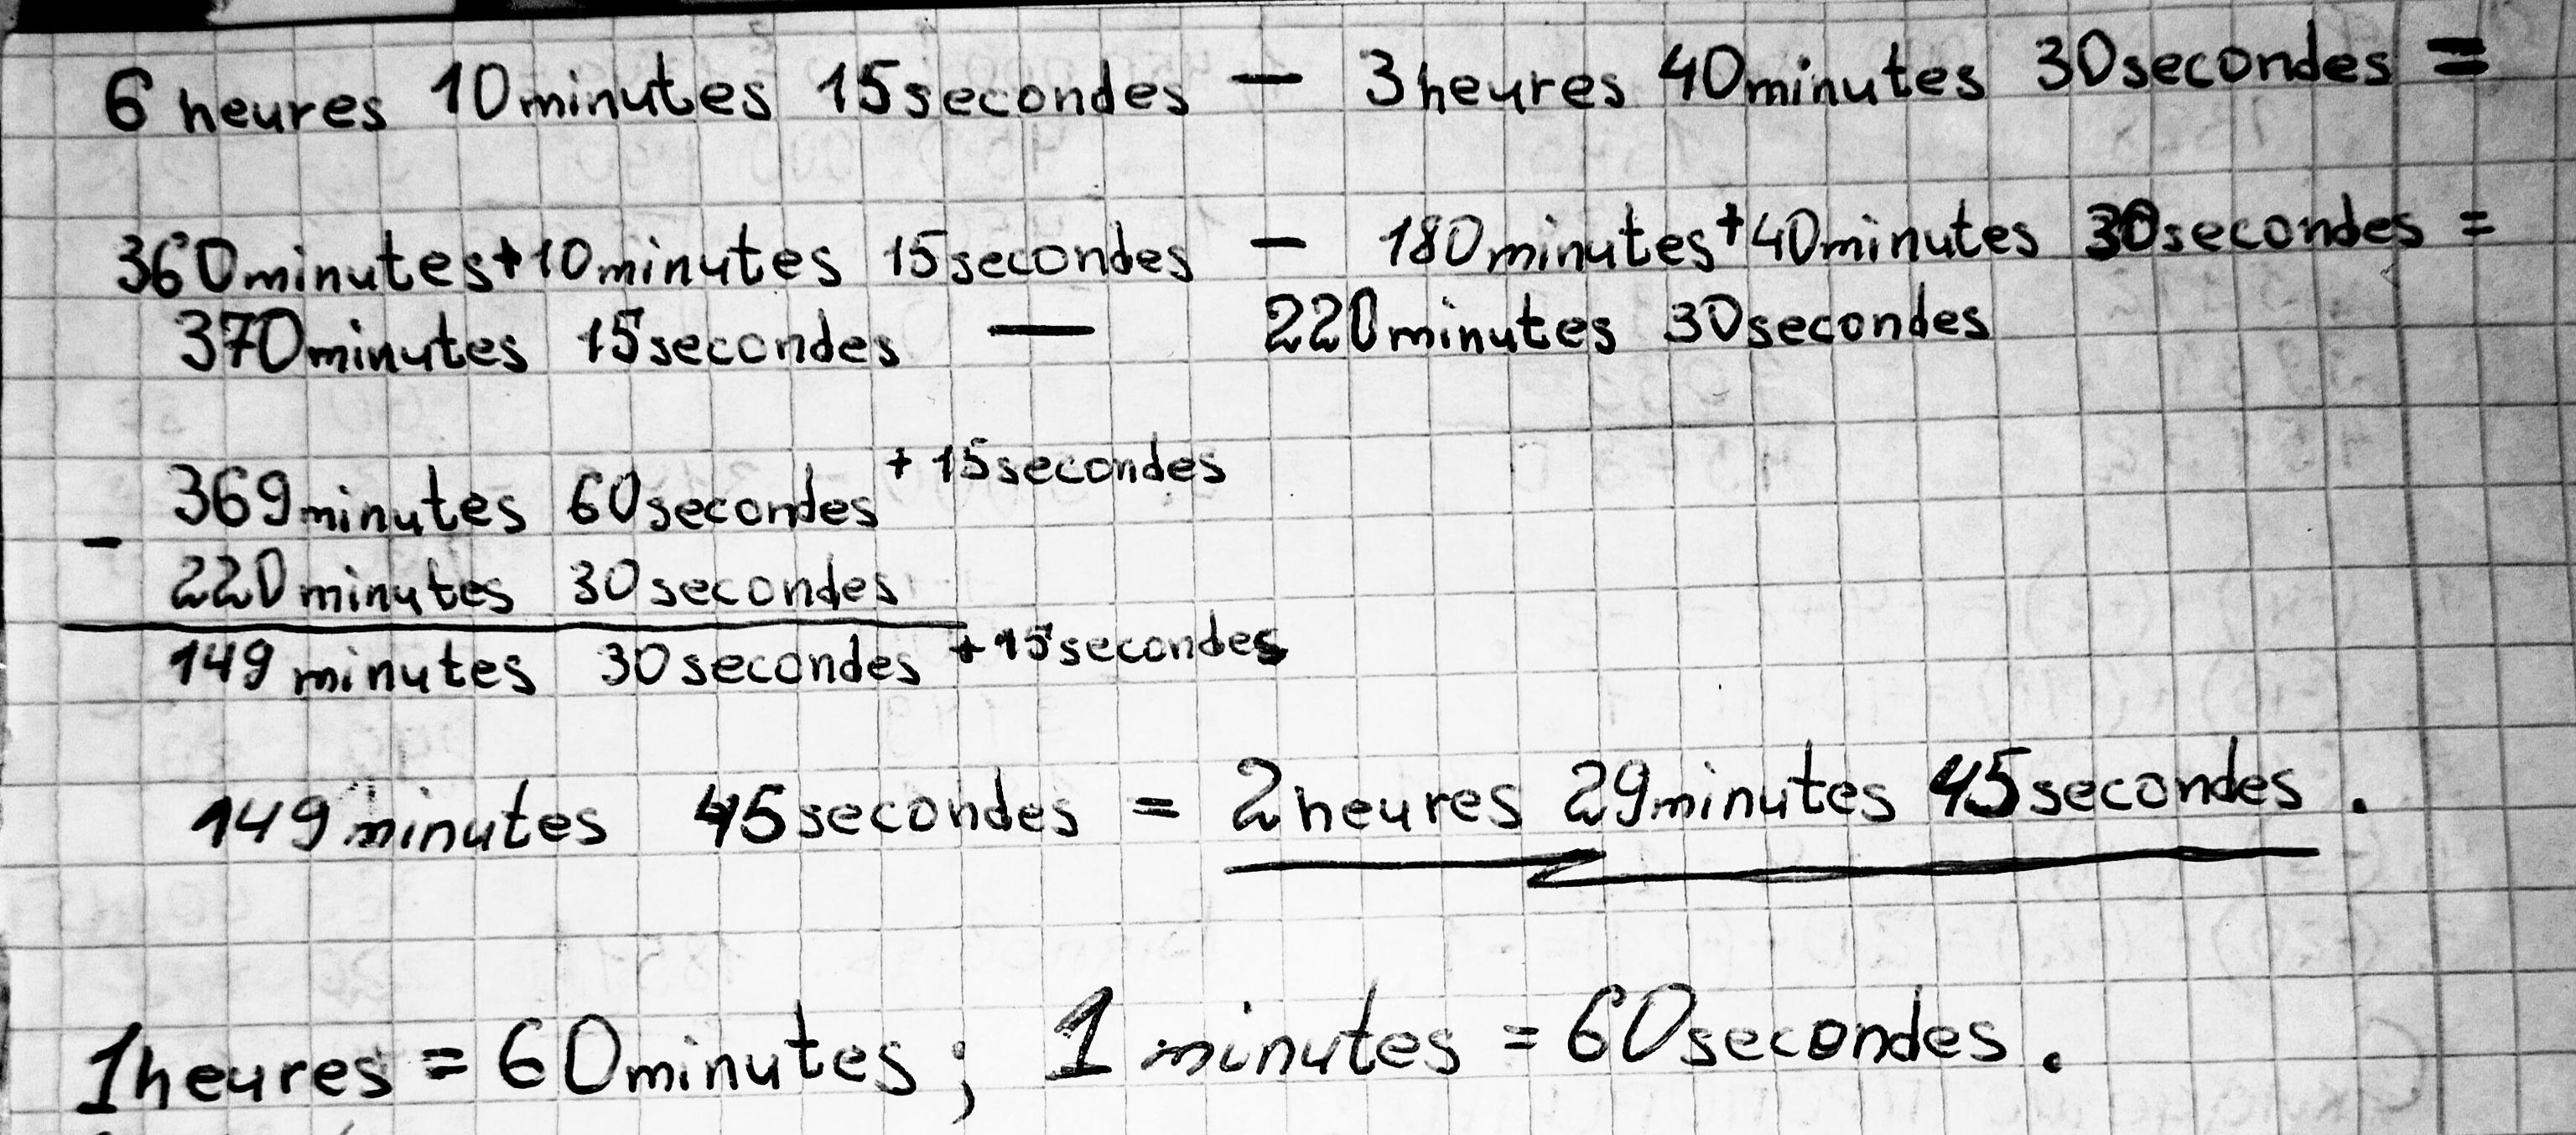 6 heures 10 minutes 15 secondes — 3 heures 40 minutes 30 secondes =
360 minutes + 10 minutes 15 secondes — 180 minutes + 40 minutes 30 secondes =
370 minutes 15 secondes — 220 minutes 30 secondes
369 minutes 60 secondes + 15 secondes
-
220 minutes 30 secondes
149 minutes 30 secondes + 15 secondes
149 minutes 45 secondes = 2 heures 29 minutes 45 secondes .
1 heures = 60 minutes ; 1 minutes = 60 secondes .